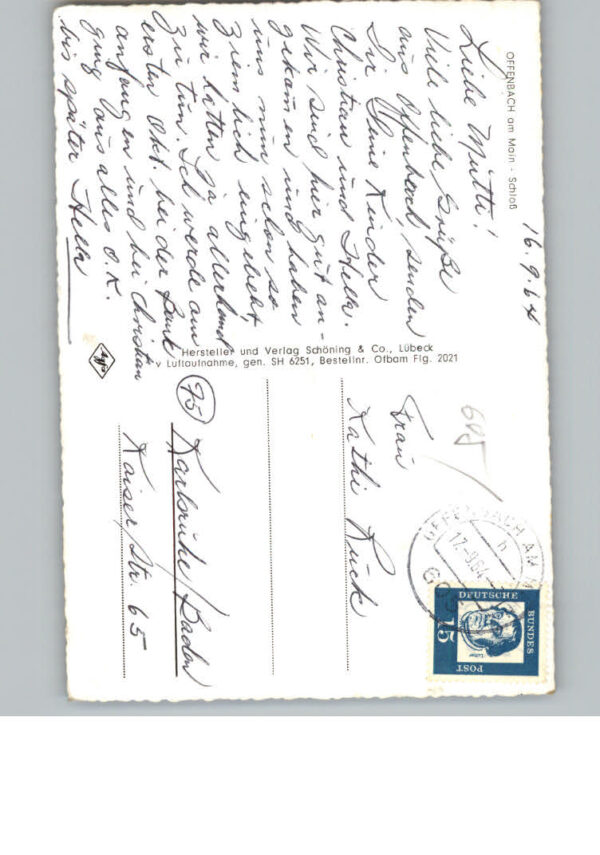 OFFENBACH am Main - Schloß
16.9.64
Liebe Mutti!
Viele liebe Grüße
aus Offenbach senden
Dir Deine Kinder
Christian und Hella.
Wir sind hier gut an-
gekomen und haben
uns nun schon so
ziemlich eingelebt,
wir hatten ja allerhand
zu tun. Ich werde am
ersten Okt. bei der Bank
anfangen und bei Christian
ging aus alles O.K.
bis später Hella
Hersteller und Verlag Schöning & Co., Lübeck
v Luftaufnahme, gen. SH 6251, Bestellnr. Ofbam Flg. 2021
Agfa
605
Frau
Kathi Rück
75 Karlsruhe/Baden
Kaiser Str. 65
OFFENBACH AM
17.-9.64
h
DEUTSCHE
BUNDES
POST
15
Luther